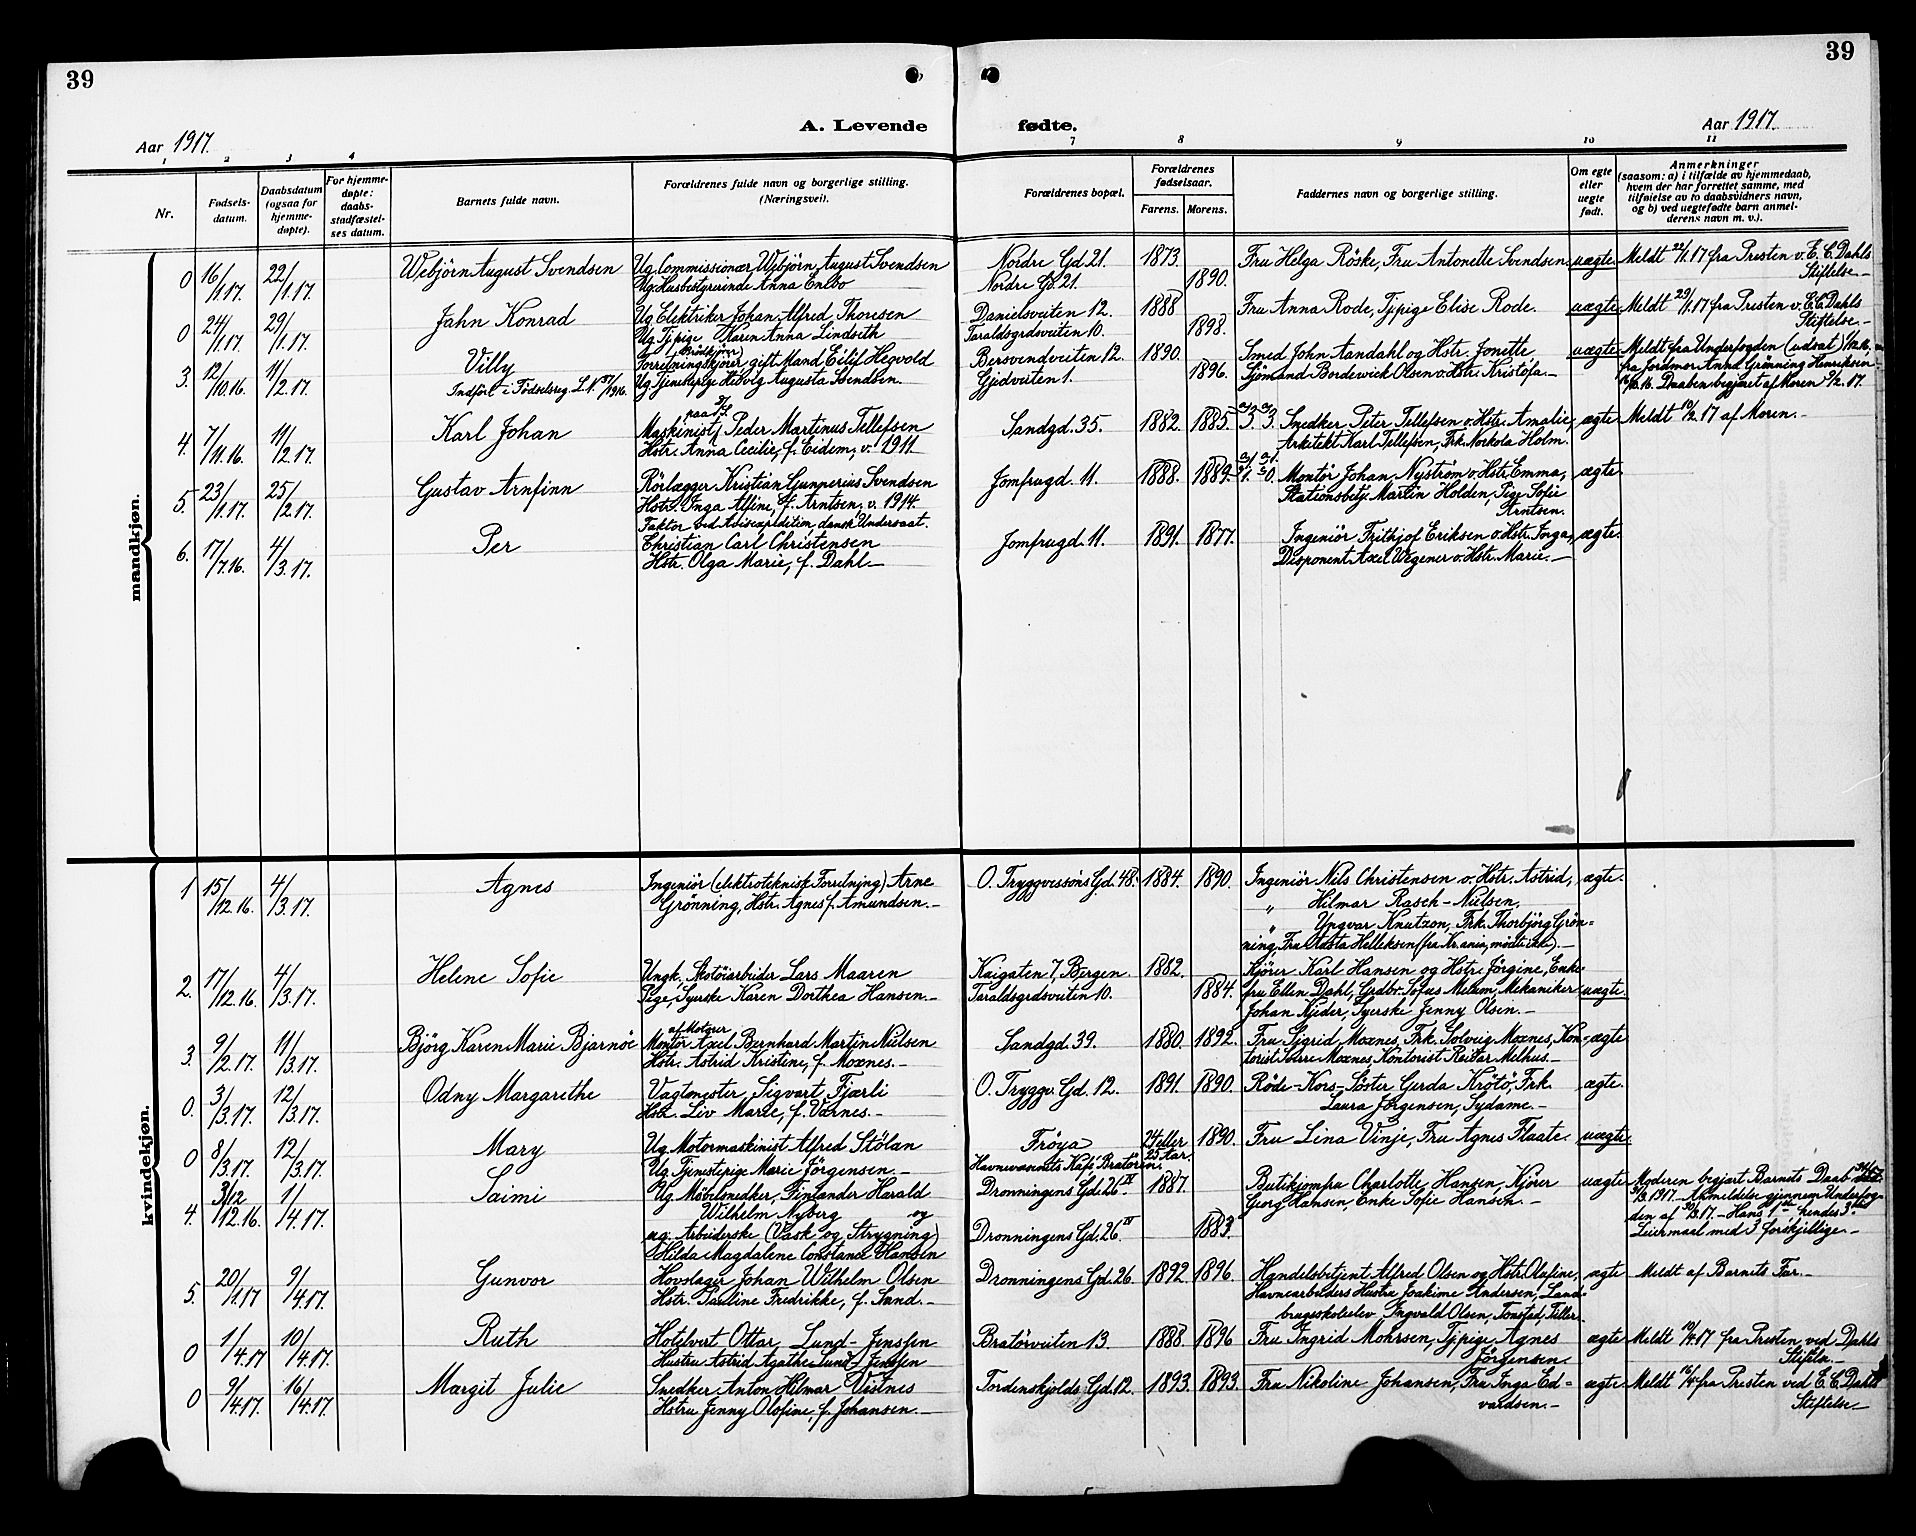 39
39
A. Levende fødte.
Aar 1917.
Aar 1917.
1 2 3 4 7 8 9 10 11
Nr.
Fødsels-
datum.
Daabsdatum
(ogsaa for
hjemme-
døpte).
For hjemme-
døpte:
daabs-
stadfæstel-
ses datum.
Barnets fulde navn.
Forældrenes fulde navn og borgerlige stilling.
(Næringsvei).
Forældrenes bopæl.
Forældrenes
fødselsaar.
Farens. Morens.
Faddernes navn og borgerlige stilling.
Om egte
eller
uegte
født.
Anmerkninger
(saasom: a) i tilfælde av hjemmedaab,
hvem der har forrettet samme, med
tilføielse av to daabsvidners navn,
og b) ved uegtefødte barn anmel-
derens navn m. v.).
mandkjøn.
0 16/1.17. 22/1.17. Webjörn August Svendsen
Ug. Commissionær Webjörn August Svendsen
Ug. Husbestyrerinde Anna Enebo
Nordre Gd. 21. 1873.
Nordre Gd. 21. 1890.
Fru Helga Röske, Fru Antonette Svendsen. uægte. Meldt 22/1.17 fra Presten v. E. C. Dahls
Stiftelse.—
0 24/1.17. 29/1.17. Jahn Konrad
Ug. Elektriker Johan Alfred Thoresen
Ug. Tjpige Karen Anna Lindseth
Danielsveiten 12. 1888
Taraldsgrdsveiten 10. 1898.
Fru Anna Rode, Tjpige Elise Rode. uægte. Meldt 29/1.17 fra Presten v. E. C. Dahls
Stiftelse.—
3. 12/10.16. 11/2.17. Villy
Indfört i Födselsreg. L. N. 37/1916.
(Brödkjører)
Ug. Forretningskjører gift Mand Eilif Hegvold
Ug. Tjenstepige Hedvig Augusta Svendsen.
Bersvendveiten 12. 1890.
Gjedveiten 1. 1896.
Smed John Aandahl og Hstr. Jonette,
Sjömand Bordewick Olsen o. Hstr. Kristofa.—
uægte. Meldt fra Underfogden (udsat) 1/12.16,
fra Jordmor Anna Grönning Henriksen
16/12.16. Daaben begjæret af Moren 9/2.17.
4. 7/11.16. 11/2.17. Karl Johan
paa D/S
Maskinist Peder Martinus Tellefsen
Hstr. Anna Cecilie, f. Eidem, v. 1911.
Sandgd. 35. 1882. 1885. 3. 3.
Snedker Peter Tellefsen o. Hstr. Amalie,
Arkitekt Karl Tellefsen, Frk. Norkola Holm.
ægte. Meldt 10/2.17 af Moren.—
5. 23/1.17. 25/2.17. Gustav Arnfinn
Rörlægger Kristian Gunnerius Svendsen
Hstr. Inga Alfine, f. Arntsen, v. 1914.
Jomfrugd. 11. 1888. 1889.
Montör Johan Nyström o. Hstr. Emma,
Stationsbetj. Martin Holden, Pige Sofie
Arntsen.
ægte.
6. 17/7.16. 4/3.17. Per
Faktor ved Avisexpedition dansk Undersaat.
Christian Carl Christensen
Hstr. Olga Marie, f. Dahl.—
Jomfrugd. 11. 1891. 1877.
Ingeniör Frithjof Eriksen o. Hstr. Inga,
Disponent Axel Wegener o. Hstr. Marie.—
ægte.
kvindekjøn.
1 15/12.16. 4/3.17. Agnes
Ingeniör (elektroteknisk Forretning) Arne
Grönning, Hstr. Agnes f. Amundsen.—
O. Tryggvessöns Gd. 48. 1884. 1890.
Ingeniör Nils Christensen o. Hstr. Astrid,
" Hilmar Rasch-Nielsen,
" Yngvar Knutzon, Frk. Thorbjörg Grön-
ning, Fru Aasta Helleksen (fra Kr.ania, mödte ikke).—
ægte.
2. 17/12.16. 4/3.17. Helene Sofie
Ungk. Skotöiarbeider Lars Maaren
Pige, Syerske Karen Dorthea Hansen.—
Kaigaten 7, Bergen. 1882.
Taraldsgrdsveiten 10. 1884.
Kjörer Karl Hansen og Hstr. Jörgine, Enke-
fru Ellen Dahl, Gudbr. Sofus Melum, Mekaniker
Johan Kjeder, Syerske Jenny Olsen.—
uægte.
3. 9/2.17. 11/3.17. Björg Karen Marie Bjarnöe
af Motorer
Montör Axel Bernhard Martin Nielsen
Hstr. Astrid Kristine, f. Moxnes.—
Sandgd. 39. 1880. 1892.
Fru Sigrid Moxnes, Frk. Solveig Moxnes, Kon-
torist Sverre Moxnes, Kontorist Reidar Melhus.—
ægte.
0. 3/3.17. 12/3.17. Odny Margarethe
Vagtmester Sigvart Fjærli
Hstr. Liv Marie, f. Værnes.—
O. Trygg. Gd. 12. 1891. 1890.
Röde-Kors-Söster Gerda Krötö, Frk.
Laura Jörgensen, Sydame.—
ægte.
0 8/3.17. 12/3.17. Mary
Ug. Motormaskinist Alfred Stölan
Ug. Tjenstepige Marie Jörgensen.—
Fröya 24 eller 25 Aar. 1890.
Havnevæsenets Kafé, Bratören.
Fru Lina Vinje, Fru Agnes Flaate. uægte.
4. 3/12/12.16. 1/4.17. Saimi
Ug. Möbelsnedker, Finlænder Harald
Wilhelm Nyberg og
ug. Arbeiderske (Vask og Strygning)
Hilda Magdalene Constance Hansen
Dronningens Gd. 26 IV 1887.
Dronningens Gd. 26. IV 1883.
Butikjomfru Charlotte Hansen, Kjörer
Georg Hansen, Enke Sofie Hansen.—
uægte Moderen begjært Barnets Daab
31/3.1917.— Anmeldelse gjennem Underfog-
den af 30/3.17.— Hans 1ste hendes 3die
Leiermaal med 3 forskjellige.—
5. 20/1.17 9/4.17. Gunvor
Hovslager Johan Wilhelm Olsen
Hstr. Pauline Fredrikke, f. Sand.—
Dronningens Gd. 26. 1892 1896.
Handelsbetjent Alfred Olsen og Hstr. Olafine,
Havnearbeiders Hustru Joakime Andersen, Land-
brugsskoleelev Ingvald Olsen, Tonstad, Tiller.
ægte Meldt af Barnets Far.—
0 1/4.17 10/4.17. Ruth
Hotelvert Ottar Lund-Jenssen
Hustru Astrid Agathe Lund-Jenssen
Bratörveiten 13. 1888. 1896
Fru Ingrid Mohrsen, Tjpige Agnes
Jörgensen.
ægte Meldt 10/4.17 fra Presten ved Dahls
Stiftelse.—
0 9/4.17. 16/4.17. Margit Julie
Snedker Anton Hilmar Vistnes
Hstru Jenny Olofine, f. Johansen.—
Tordenskjolds Gd. 12. 1893. 1893.
Fru Nikoline Johansen, Fru Inga Ed-
vardsen.—
ægte. Meldt 16/4 fra Presten ved E. C. Dahls
Stiftelse.—